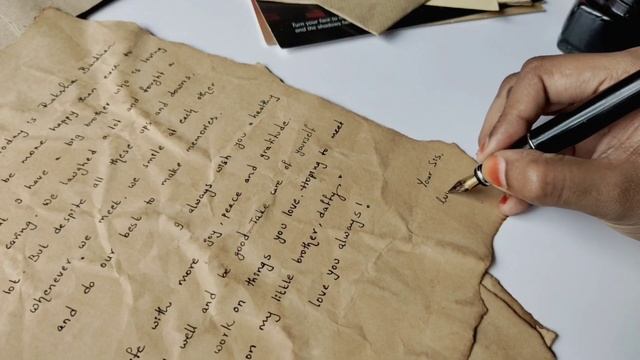 Turn your face to
and the shadows
today is Raksha Bandhan
be more happy than
I have a big brother who is
caring. We laughed and fought a
lot. But despite all these ups and downs,
whenever we meet, we smile at each other
and do our best to make memories.
always with you healthy
with more joy, peace and gratitude.
well and be good. Take care of yourself
work on things you love. Hoping to meet
on my little brother daffy.
love you always!
Your Sis,